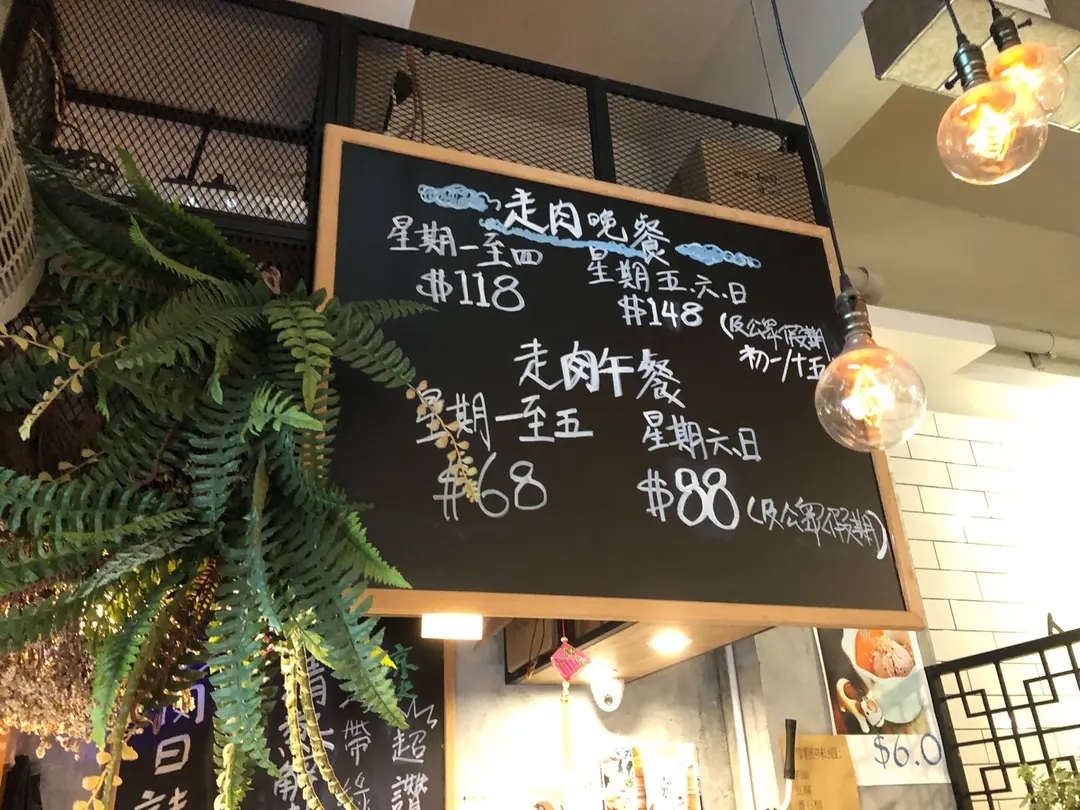 走肉晚餐
星期一至四
$118
星期五.六.日
$148
(及公眾假期
初一/十五
走肉午餐
星期一至五
$68
星期六、日
$88 (及公眾假期)
$6.0
帶
超
讚
日